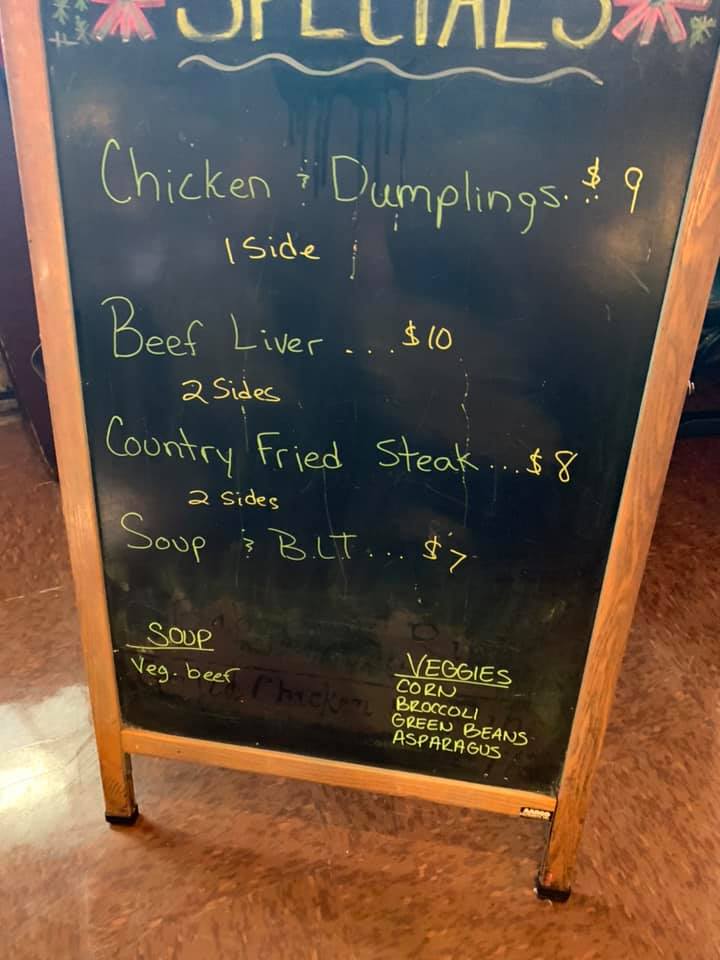 SPECIALS
Chicken & Dumplings. $ 9
1 Side
Beef Liver ... $10
2 Sides
Country Fried Steak ... $8
2 sides
Soup & B.L.T ... $7
SOUP
Veg. beef
VEGGIES
CORN
BROCCOLI
GREEN BEANS
ASPARAGUS